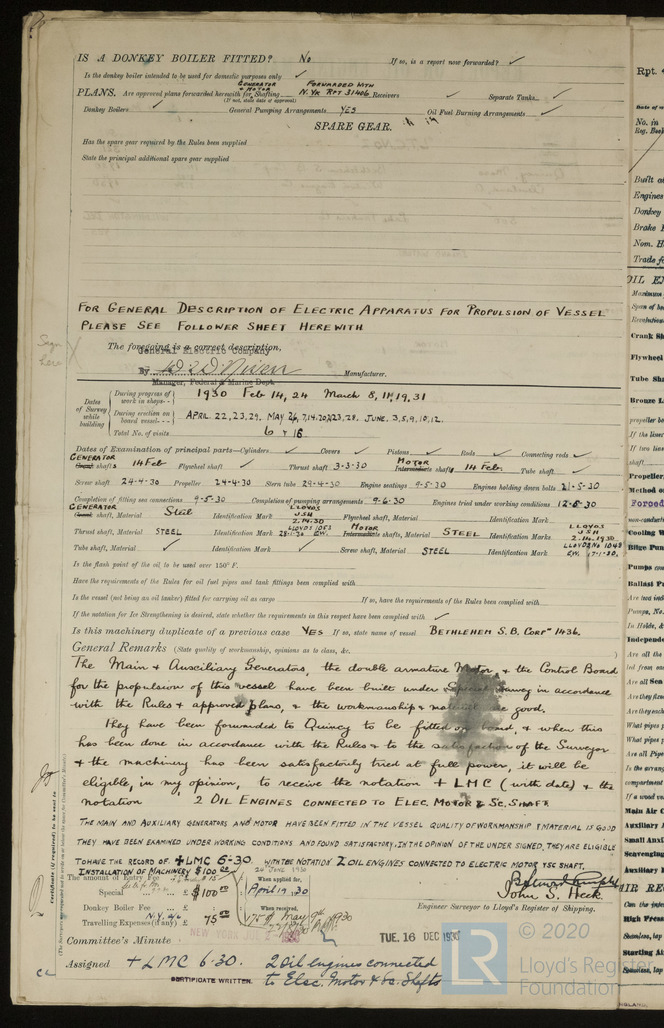 IS A DONKEY BOILER FITTED? No If so, is a report now forwarded? ✓
Is the donkey boiler intended to be used for domestic purposes only ✓
GENERATOR & MOTOR FORWARDED WITH
PLANS. Are approved plans forwarded herewith for Shafting N.YK RPT 31406 Receivers ✓ Separate Tanks ✓
(If not, state date of approval)
Donkey Boilers ✓ General Pumping Arrangements YES Oil Fuel Burning Arrangements ✓
SPARE GEAR.
Has the spare gear required by the Rules been supplied
State the principal additional spare gear supplied
FOR GENERAL DESCRIPTION OF ELECTRIC APPARATUS FOR PROPULSION OF VESSEL
PLEASE SEE FOLLOWER SHEET HEREWITH
Sign here
The foregoing is a correct description,
General Electric Company
By Manufacturer.
Manager, Federal & Marine Dept
Dates of Survey while building
During progress of work in shops-- 1930 Feb 14, 24 March 8, 11, 19, 31
During erection on board vessel--- APRIL 22, 23, 29. MAY 26, 7, 14, 20, 23, 28. JUNE. 3, 5, 9, 10, 12.
Total No. of visits 6 + 16
Dates of Examination of principal parts—Cylinders ✓ Covers ✓ Pistons ✓ Rods ✓ Connecting rods ✓
GENERATOR MOTOR
Crank shafts 14 Feb Flywheel shaft ✓ Thrust shaft 3-3-30 Intermediate shafts 14 Feb. Tube shaft ✓
Screw shaft 24-4-30 Propeller 24-4-30 Stern tube 29-4-30 Engine seatings 9-5-30 Engines holding down bolts 21-5-30
Completion of fitting sea connections 9-5-30 Completion of pumping arrangements 9-6-30 Engines tried under working conditions 12-6-30
GENERATOR LLOYDS J.S.H 2.14.30
Crank shaft, Material Steel Identification Mark Flywheel shaft, Material Identification Mark
MOTOR LLOYDS J.S.H 2.14.1930
Thrust shaft, Material STEEL Identification Mark Intermediate shafts, Material STEEL Identification Marks
Tube shaft, Material ✓ Identification Mark ✓ Screw shaft, Material STEEL Identification Mark
Is the flash point of the oil to be used over 150° F.
Have the requirements of the Rules for oil fuel pipes and tank fittings been complied with
Is the vessel (not being an oil tanker) fitted for carrying oil as cargo If so, have the requirements of the Rules been complied with
If the notation for Ice Strengthening is desired, state whether the requirements in this respect have been complied with ✓
Is this machinery duplicate of a previous case YES If so, state name of vessel BETHLEHEM S.B. CORPN 1436.
General Remarks (State quality of workmanship, opinions as to class, &c.
The Main & Auxiliary Generators, the double armature Motor & the Control Board
for the propulsion of this vessel have been built under Special Survey in accordance
with the Rules & approved plans, & the workmanship & material are good.
They have been forwarded to Quincy to be fitted on board, & when this
has been done in accordance with the Rules & to the satisfaction of the Surveyor
& the machinery has been satisfactorily tried at full power, it will be
eligible, in my opinion, to receive the notation + LMC (with date) & the
notation 2 OIL ENGINES CONNECTED TO ELEC. MOTOR & SC. SHAFT.
THE MAIN AND AUXILIARY GENERATORS AND MOTOR HAVE BEEN FITTED IN THE VESSEL QUALITY OF WORKMANSHIP & MATERIAL IS GOOD
THEY HAVE BEEN EXAMINED UNDER WORKING CONDITIONS AND FOUND SATISFACTORY, IN THE OPINION OF THE UNDER SIGNED, THEY ARE ELIGIBLE
TO HAVE THE RECORD OF +LMC 6-30. WITH THE NOTATION 2 OIL ENGINES CONNECTED TO ELECTRIC MOTOR & SC. SHAFT.
INSTALLATION OF MACHINERY $100.00
The amount of Entry Fee When applied for,
Special £ $100.00 April 19 30
Donkey Boiler Fee £ When received,
Travelling Expenses (if any) £ 75.00
John S. Heck.
Engineer Surveyor to Lloyd's Register of Shipping.
Committee's Minute NEW YORK TUE. 16 DEC 1930
Assigned + LMC 6-30. 2 Oil engines connected
to Elec. Motor & Sc. Shafts
CERTIFICATE WRITTEN.
© 2020
LR Lloyd's Register
Foundation